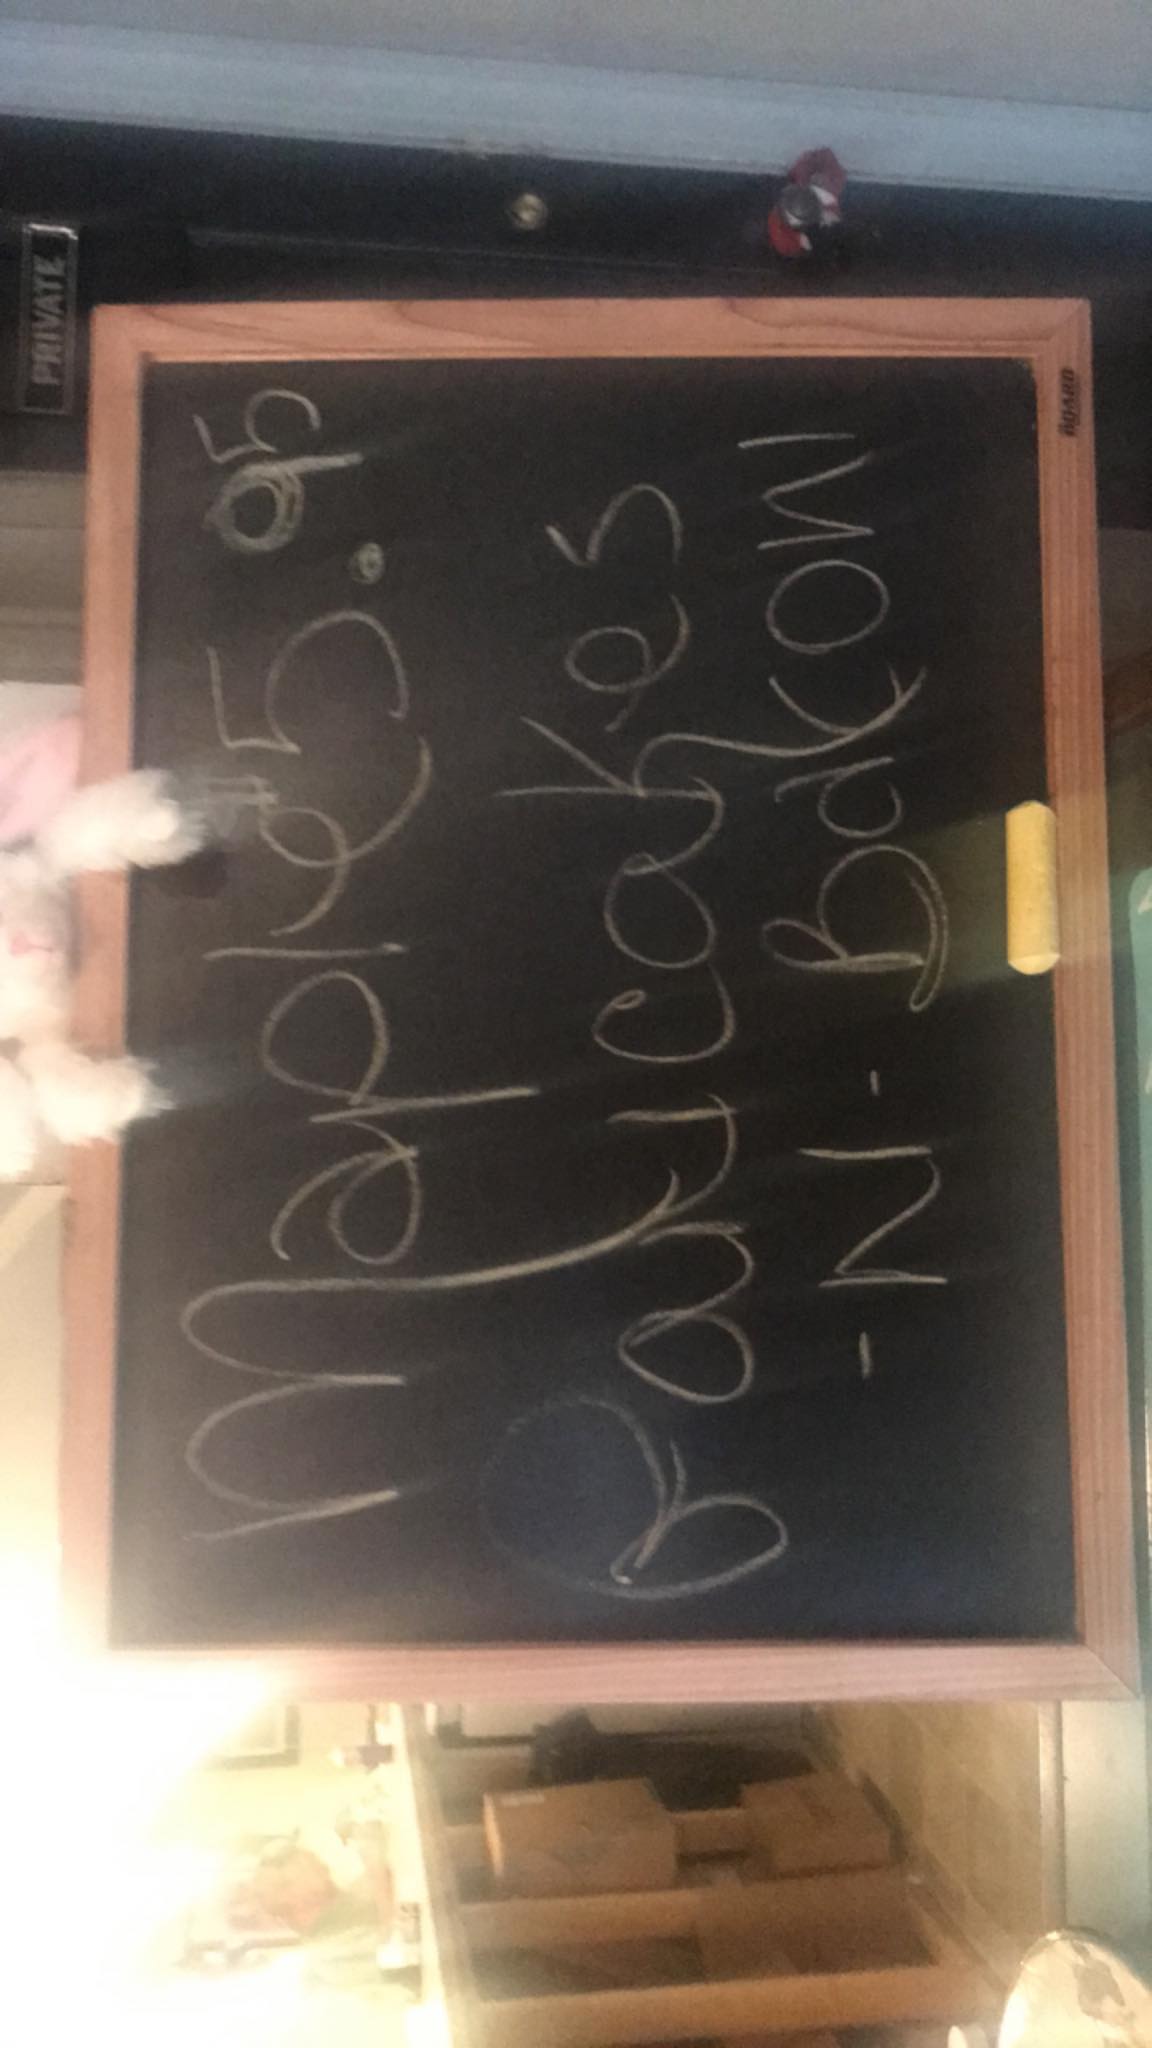 PRIVATE
Maple $5.95
Baulycakes
-N-BaKON
BOARD